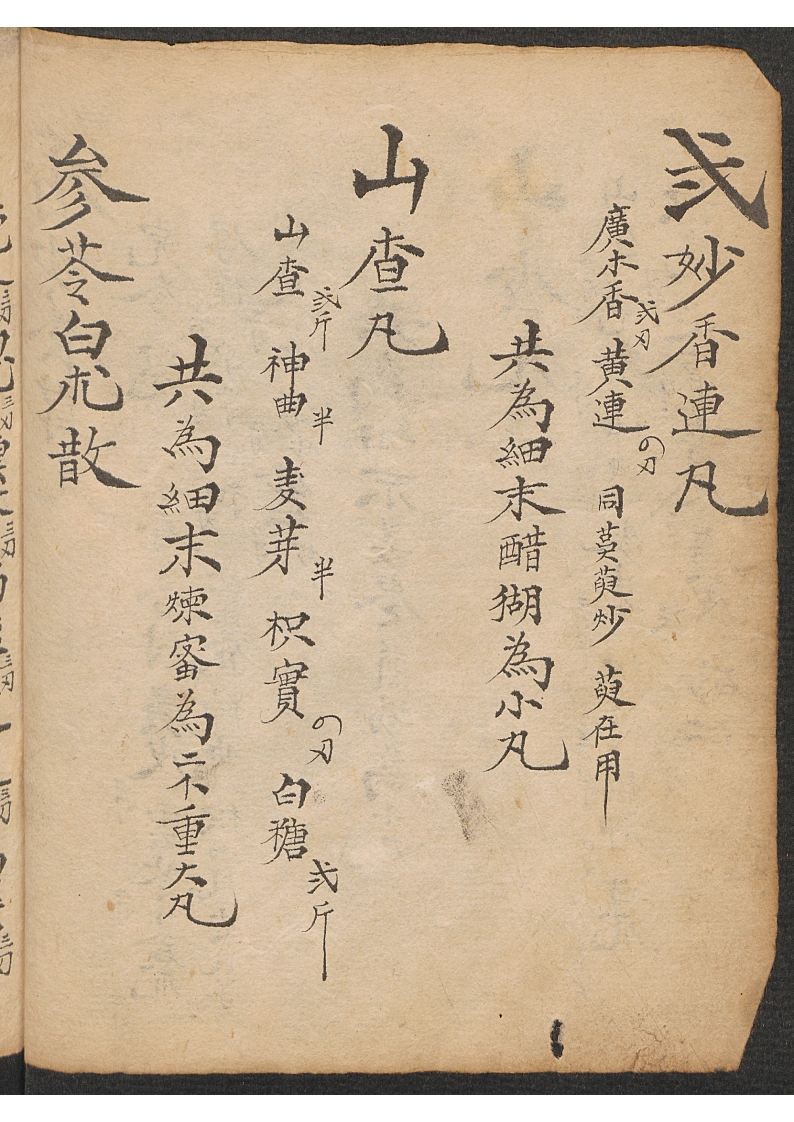 弍妙香連凡
廣木香弍刃黄連の刃同萸萸炒萸在用
共為細末醋猢為小丸
山查凡
山查弍斤神曲半麦芽半枳實の刃白糖弍斤
共為細末煉蜜為二个重大丸
参苓白朮散